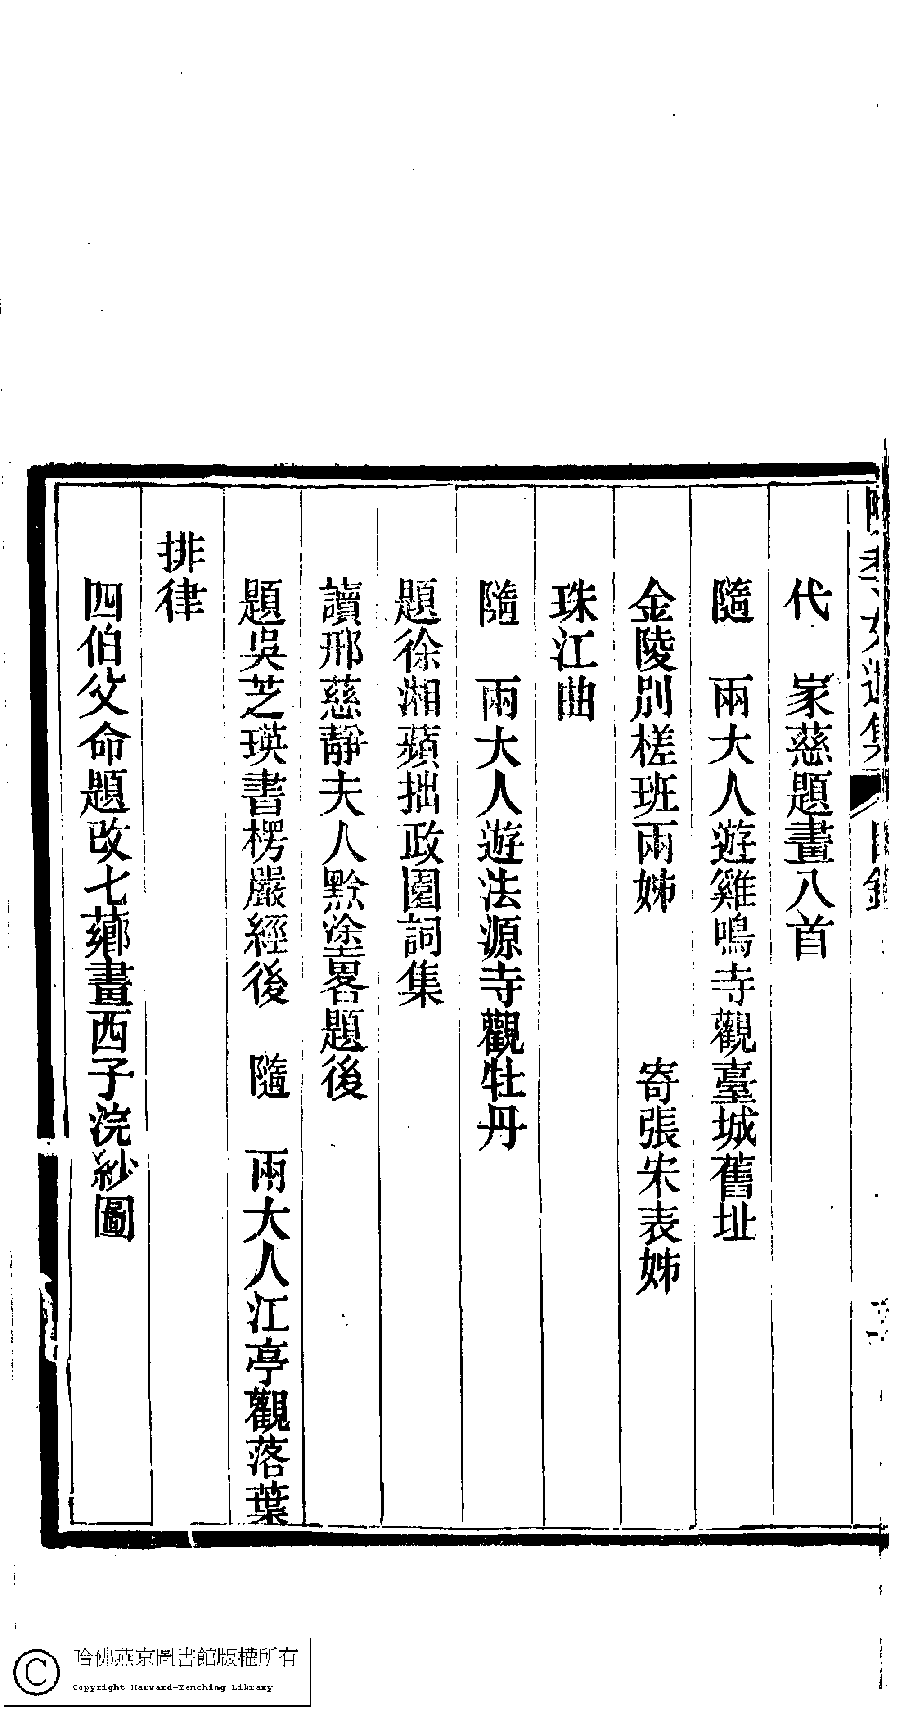 李女遺集 目錄
代 家慈題畫八首
隨 兩大人遊雞鳴寺觀臺城舊址
金陵別槎班兩姊 寄張宋表姊
珠江曲
隨 兩大人遊法源寺觀牡丹
題徐湘蘋拙政園詞集
讀邢慈靜夫人黔塗畧題後
題吳芝瑛書楞嚴經後 隨 兩大人江亭觀落葉
排律
四伯父命題改七薌畫西子浣紗圖
哈佛燕京圖書館版權所有
Copyright Harvard-Yenching Library